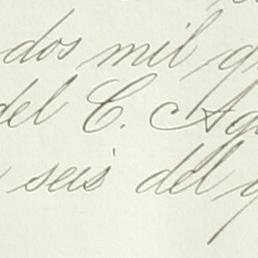 dos mil
del C.
seis del